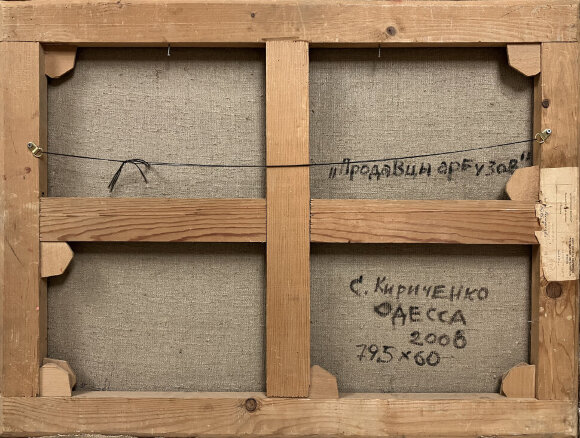 „Продавцы арбузов"
С. Кириченко
ОДЕССА
2006
79,5×60